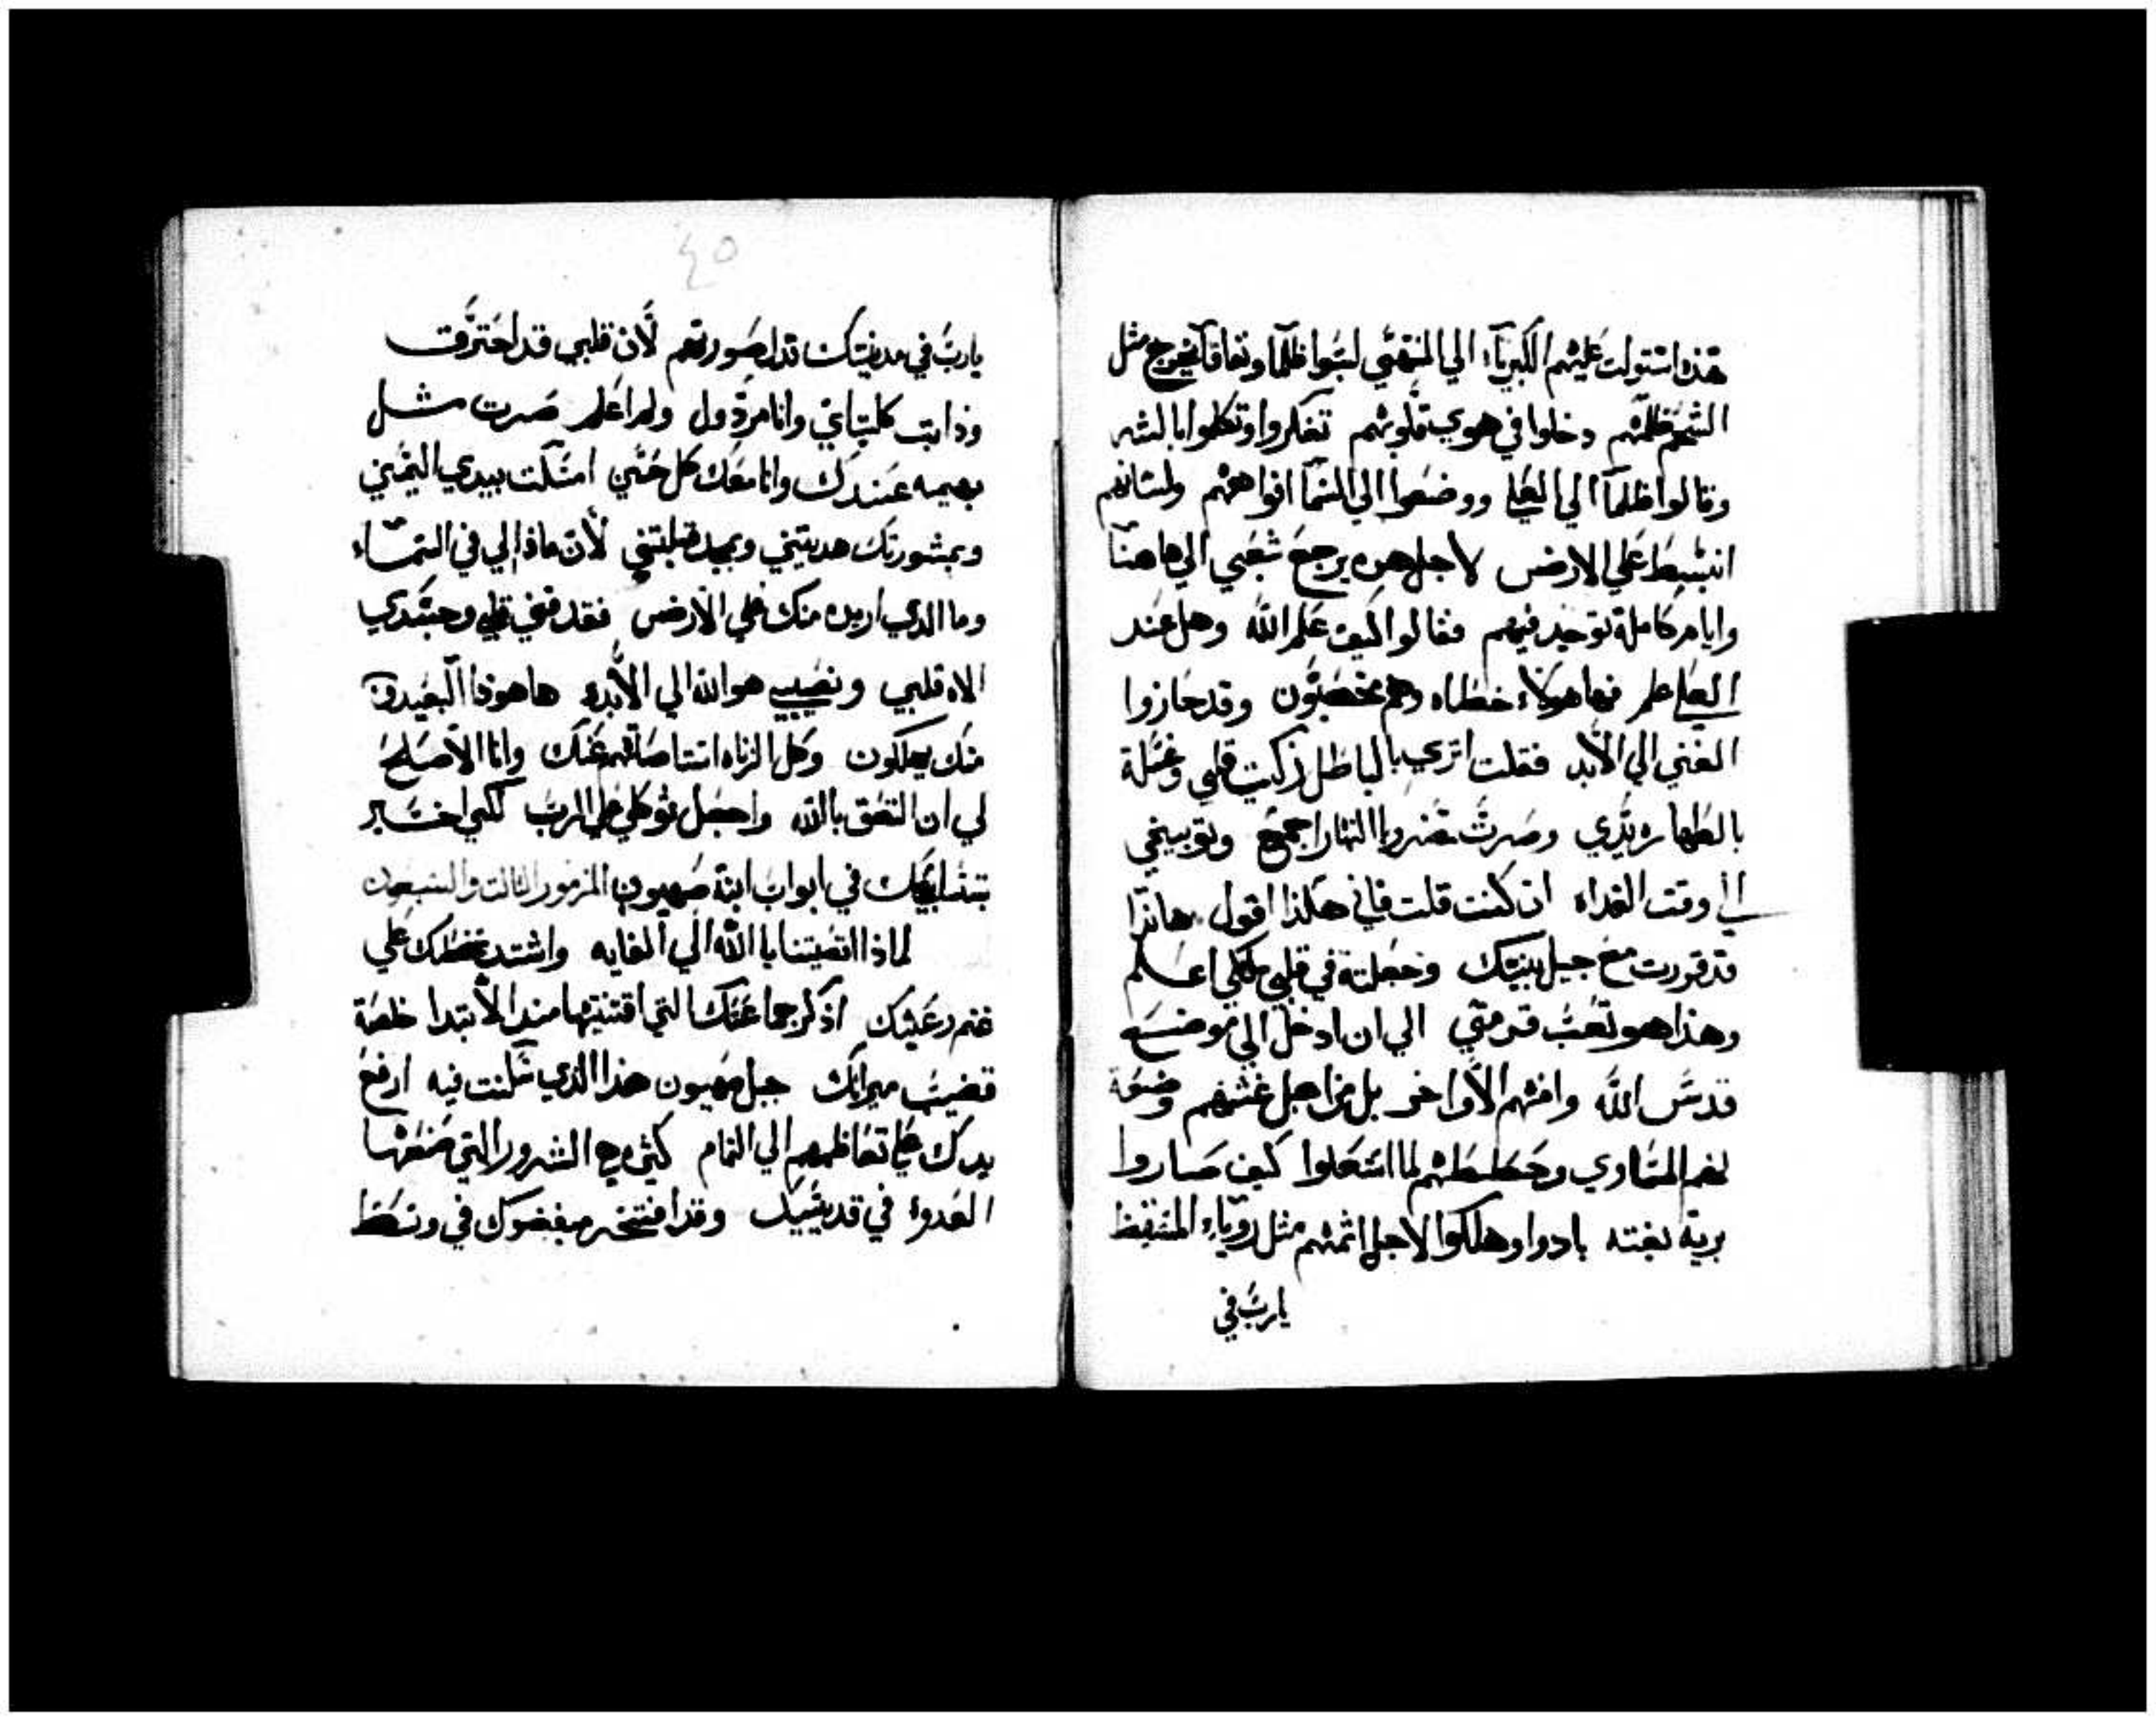 هذه استولت عليهم الكبرياء الي المنتهي لبسوا ظلما ونفاقا يخرج مثل
الشحم ظلمهم دخلوا في هوي قلوبهم تفكروا وتكلموا بالشر
وقالوا ظلما الي العلا ووضعوا الي السما افواههم ولسانهم
انبسط علي الارض لاجل هده يرجع شعبي الي هاهنا
وايام كاملة توجد فيهم فقالوا كيف علم الله وهل عند
العلي علم فها هولاء خطاه وهم مخصبون وقد حازوا
الغني الي الأبد فقلت اتري بالباطل زكيت قلبي وغسلة
بالطهاره يدي وصرت مضروبا النهار اجمع وتوبيخي
الي وقت الغداه ان كنت قلت فاني هكذا اقول هاندا
قد قورت مع جيل بنيتك وجعلته في قلبي لكي اعلم
وهذا هو تعب قدمتي الي ان ادخل الي موضع
قدس الله وافهم الأواخر بل من اجل غشهم وضعة
لهم المساوي وحططتهم لما استعلوا كيف صاروا
برية بغته بادوا وهلكوا لاجل اثمهم مثل روياء المنتيقظ
يارب في
٤٥
يارب في مدينتك تدل صورتهم لأن قلبي قد احترق
وذابت كليتاي وانا مردول ولم اعلم صرت مثل
بهيمه عندك وانا معك كل حين امسكت بيدي اليمني
وبمشورتك هديتني وبمجد قبلتني لأن ماذا لي في السماء
وما الدي اريده منك علي الأرض فقد فني قلبي وجسدي
الاه قلبي ونصيبي هو الله الي الأبد ها هودا البعيدون
منك يهلكون وكل الزناه استاصلتهم عنك وانا الأصلح
لي ان التصق بالله واجعل توكلي علي الرب لكي اخبر
بتسابيحك في ابواب ابنة صهيون المزمور الثالث والسبعون
لماذا اقصيتنا يا الله الي الغايه واشتد غضبك علي
غنم رعيتك اذكر جماعتك التي اقتنيتها منذ الأبتدا خلصة
قضيب ميراتك جبل صهيون هذا الذي سكنت فيه ارفع
يدك علي تعاظمهم الي التمام كثيره هي الشرور التي صنعها
العدوء في قديسيك وقد افتخر مبغضوك في وسط